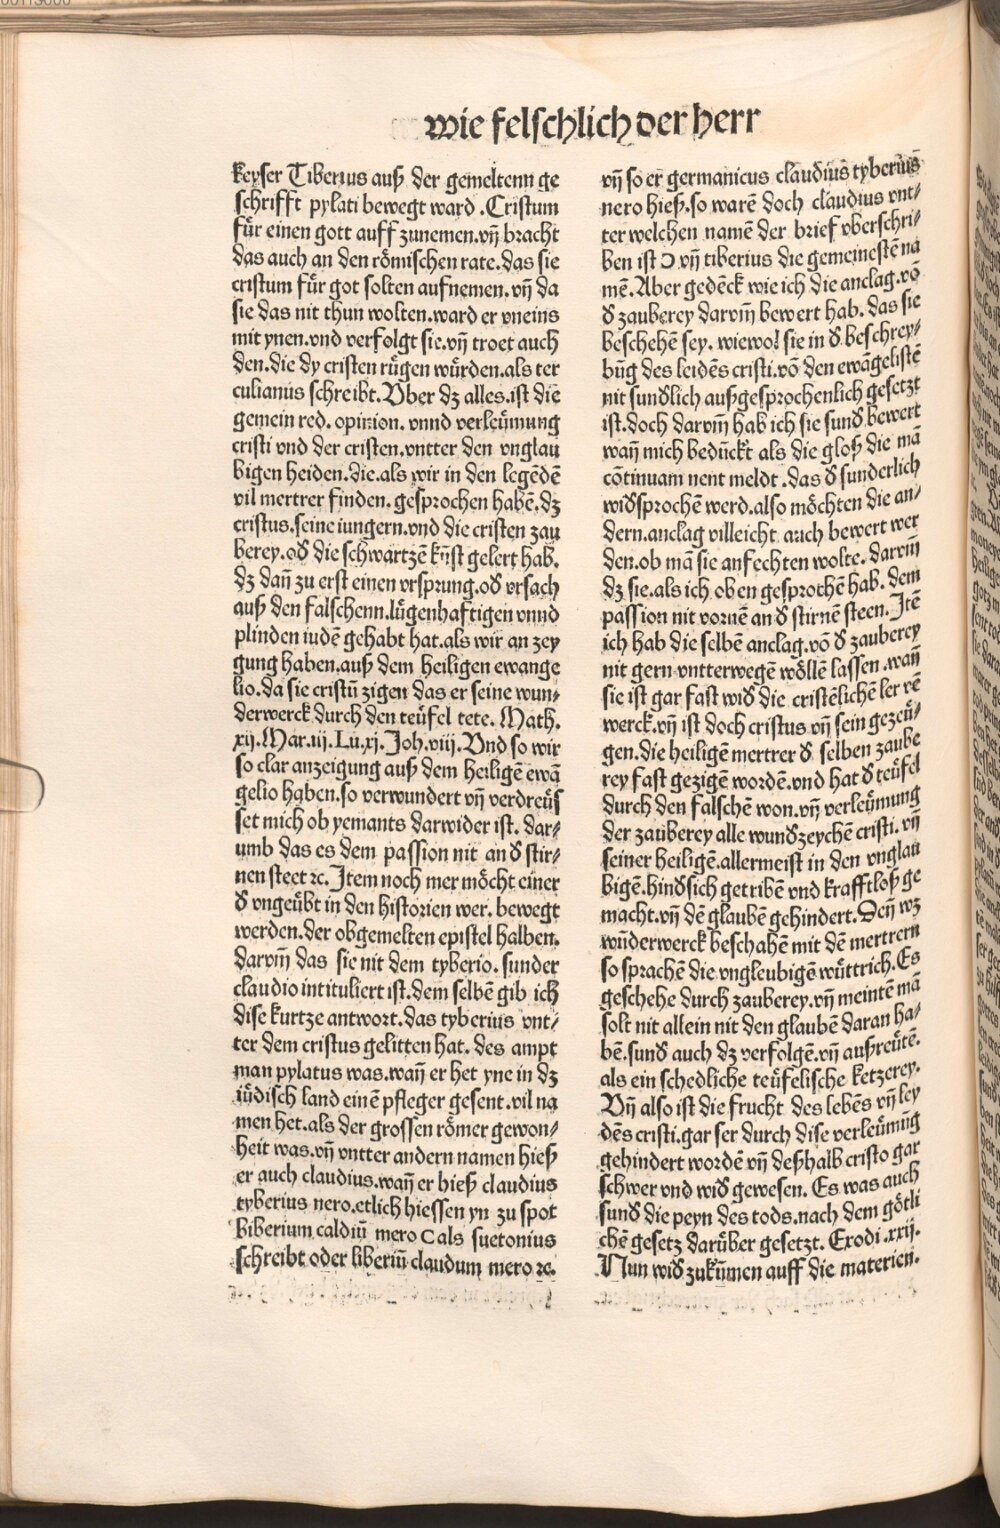 wie felschlich der herr
keyser Tiberius auß der gemeltenn ge
schrifft pylati bewegt ward .Cristum
für einen gott auff zunemen.vñ bracht
das auch an den römischen rate.das sie
cristum für got solten aufnemen.vñ da
sie das nit thun wolten.ward er vneins
mit ynen.vnd verfolgt sie.vñ troet auch
den.die dy cristen rügen würden.als ter
culianus schreibt.Vber dz alles.ist die
gemein red. opinion. vnnd verleümung
cristi vnd der cristen.vntter den vnglau
bigen heiden.die.als wir in den legēdē
vil mertrer finden. gesprochen habē.dz
cristus.seine iungern.vnd die cristen zau
berey.od̕ die schwartzē kũst gelert hab.
dz dañ zu erst einen vrsprung.od̕ vrsach
auß den falschenn.lügenhaftigen vnnd
plinden iudē gehabt hat.als wir an zey
gung haben.auß dem heiligen ewange
lio.da sie cristũ zigen das er seine wun⸗
derwerck durch den teüfel tete. Math.
xij.Mar.iij.Lu.xj.Joh.viij.Vnd so wir
so clar anzeigung auß dem heiligē ewā
gelio haben.so verwundert vñ verdreüs
set mich ob yemants darwider ist. dar⸗
umb das es dem passion nit an d̕ stir⸗
nen steet ⁊c. Item noch mer möcht einer
d̕ vngeübt in den historien wer. bewegt
werden.der obgemelten epistel halben.
darvm̃ das sie nit dem tyberio. sunder
claudio intituliert ist.dem selbē gib ich
dise kurtze antwort.das tyberius vnt⸗
ter dem cristus gelitten hat. des ampt
man pylatus was.wañ er het yne in dz
iüdisch land einē pfleger gesent.vil na
men het.als der grossen römer gewon⸗
heit was.vñ vntter andern namen hieß
er auch claudius.wañ er hieß claudius
tyberius nero.etlich hiessen yn zu spot
Biberium caldiũ mero Cals suetonius
schreibt oder liberiũ claudum mero ⁊c.
vñ so er germanicus claudius tyberius
nero hieß.so warē doch claudius vnt⸗
ter welchen namē der brief vberschri⸗
ben ist Ɔ vñ tiberius die gemeinestē na
mē. Aber gedēck wie ich die anclag.vō
d̕ zauberey darvm̃ bewert hab. das sie
beschehē sey. wiewol sie in d̕ beschrey⸗
būg des leidēs cristi.vō den ewāgelistē
nit sund̕lich außgesprochenlich gesetzt
ist.doch darvm̃ hab ich sie sund̕ bewert
wañ mich bedũckt als die gloß die mā
cōtinuam nent meldt .das d̕ sunderlich
wid̕sprochē werd.also möchten die an⸗
dern.anclag villeicht auch bewert wer
den.ob mā sie anfechten wolte. darvm̃
dz sie.als ich oben gesprochē hab. dem
passion nit vornē an d̕ stirnē steen. Itē
ich hab die selbē anclag.vō d̕ zauberey
nit gern vntterwegē wöllē lassen .wañ
sie ist gar fast wid̕ die cristēlichē ler vē
werck.vñ ist doch cristus vñ sein gezeü⸗
gen.die heiligē mertrer d̕ selben zaube
rey fast gezigē wordē.vnd hat d̕ teüfel
durch den falschē won.vñ verleümung
der zauberey alle wund̕zeychē cristi. vñ
seiner heiligē.allermeist in den vnglau
bigē.hind̕sich getribē vnd krafftloß ge
macht.vñ dē glaubē gehindert.Deñ wz
wũderwerck beschahē mit dē mertrern
so sprachē die vngleubigē wüttrich.Es
geschehe durch zauberey.vñ meintē mā
solt nit allein nit den glaubē daran ha⸗
bē.sund̕ auch dz verfolgē.vñ außreütē.
als ein schedliche teüfelische ketzerey.
Vñ also ist die frucht des lebēs vñ ley
dēs cristi.gar ser durch dise verleümũg
gehindert wordē vñ deßhalb cristo gar
schwer vnd wid̕ gewesen. Es was auch
sund̕ die peyn des tods.nach dem götli
chē gesetz darüber gesetzt. Exodi .xxij.
Nun wid̕ zukũmen auff die materien.